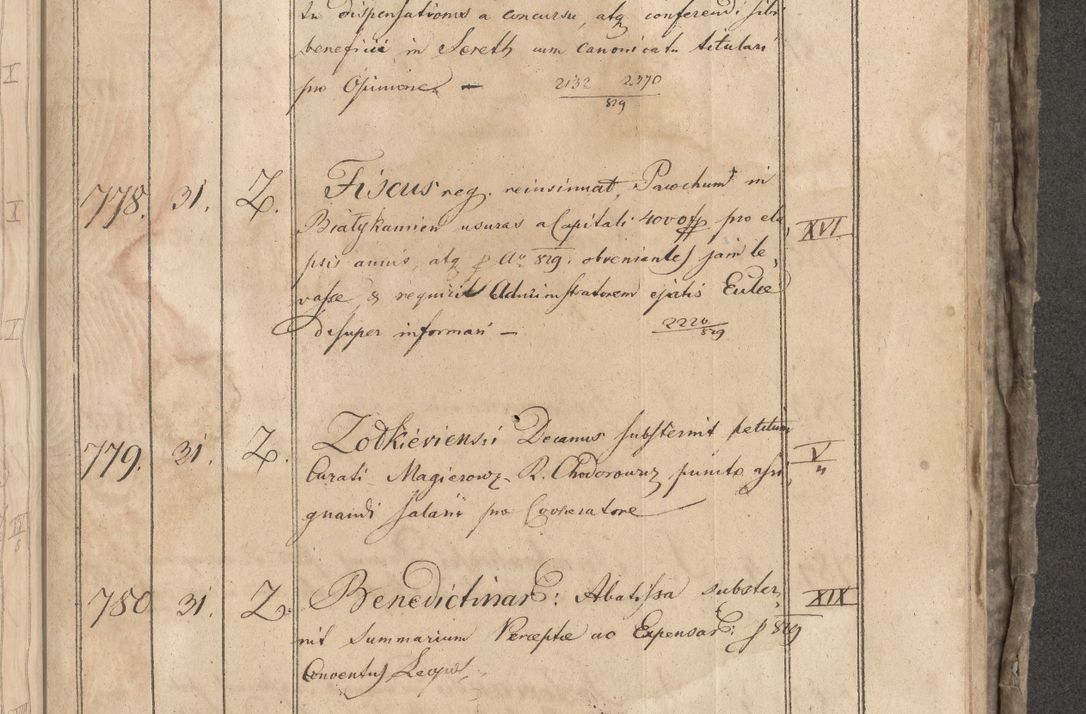 tu dispensationis a concursu, atq conferendi sibi
beneficii in Sereth cum canonicatu titulari
pro Opinione. — 2132 2370
829
778. 31. Z. Fiscus reg. reinsinuat, Parochum in
Białykamien usuras a Capitali 4000 f pro ela, XVI
psis annis, atq p Aō 829. obvenientes jam le,
vasse, & requirit Administratorem ejatis Eccliæ
desuper informari — 2220
829
779. 31. Z. Zołkieviensis Decanus substernit petitum V
Curati Magierow R. Chodorowicz puncto assi, "
gnandi salarii pro Cooperatore
780 31. Z. Benedictinar: Abatissa subster, XIX
nit summarium Perceptæ ac Expensar: p 829
Conventus Leopol.